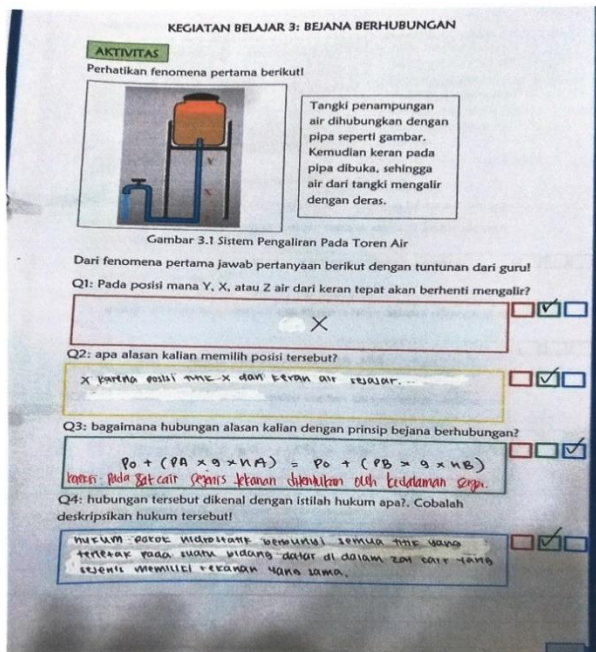 KEGIATAN BELAJAR 3: BEJANA BERHUBUNGAN
AKTIVITAS
Perhatikan fenomena pertama berikut!
Y
X
Tangki penampungan
air dihubungkan dengan
pipa seperti gambar.
Kemudian keran pada
pipa dibuka, sehingga
air dari tangki mengalir
dengan deras.
Gambar 3.1 Sistem Pengaliran Pada Toren Air
Dari fenomena pertama jawab pertanyaan berikut dengan tuntunan dari guru!
Q1: Pada posisi mana Y, X, atau Z air dari keran tepat akan berhenti mengalir?
X
Q2: apa alasan kalian memilih posisi tersebut?
X karena posisi titik X dan keran air sejajar...
Q3: bagaimana hubungan alasan kalian dengan prinsip bejana berhubungan?
Po + (PA x g x hA) = Po + (PB x g x hB)
Pada zat cair sejenis tekanan ditentukan oleh kedalaman
Q4: hubungan tersebut dikenal dengan istilah hukum apa?. Cobalah
deskripsikan hukum tersebut!
hukum pokok hidrostatik berbunyi semua titik yang
terletak pada suatu bidang datar di dalam zat cair yang
sejenis memiliki tekanan yang sama.